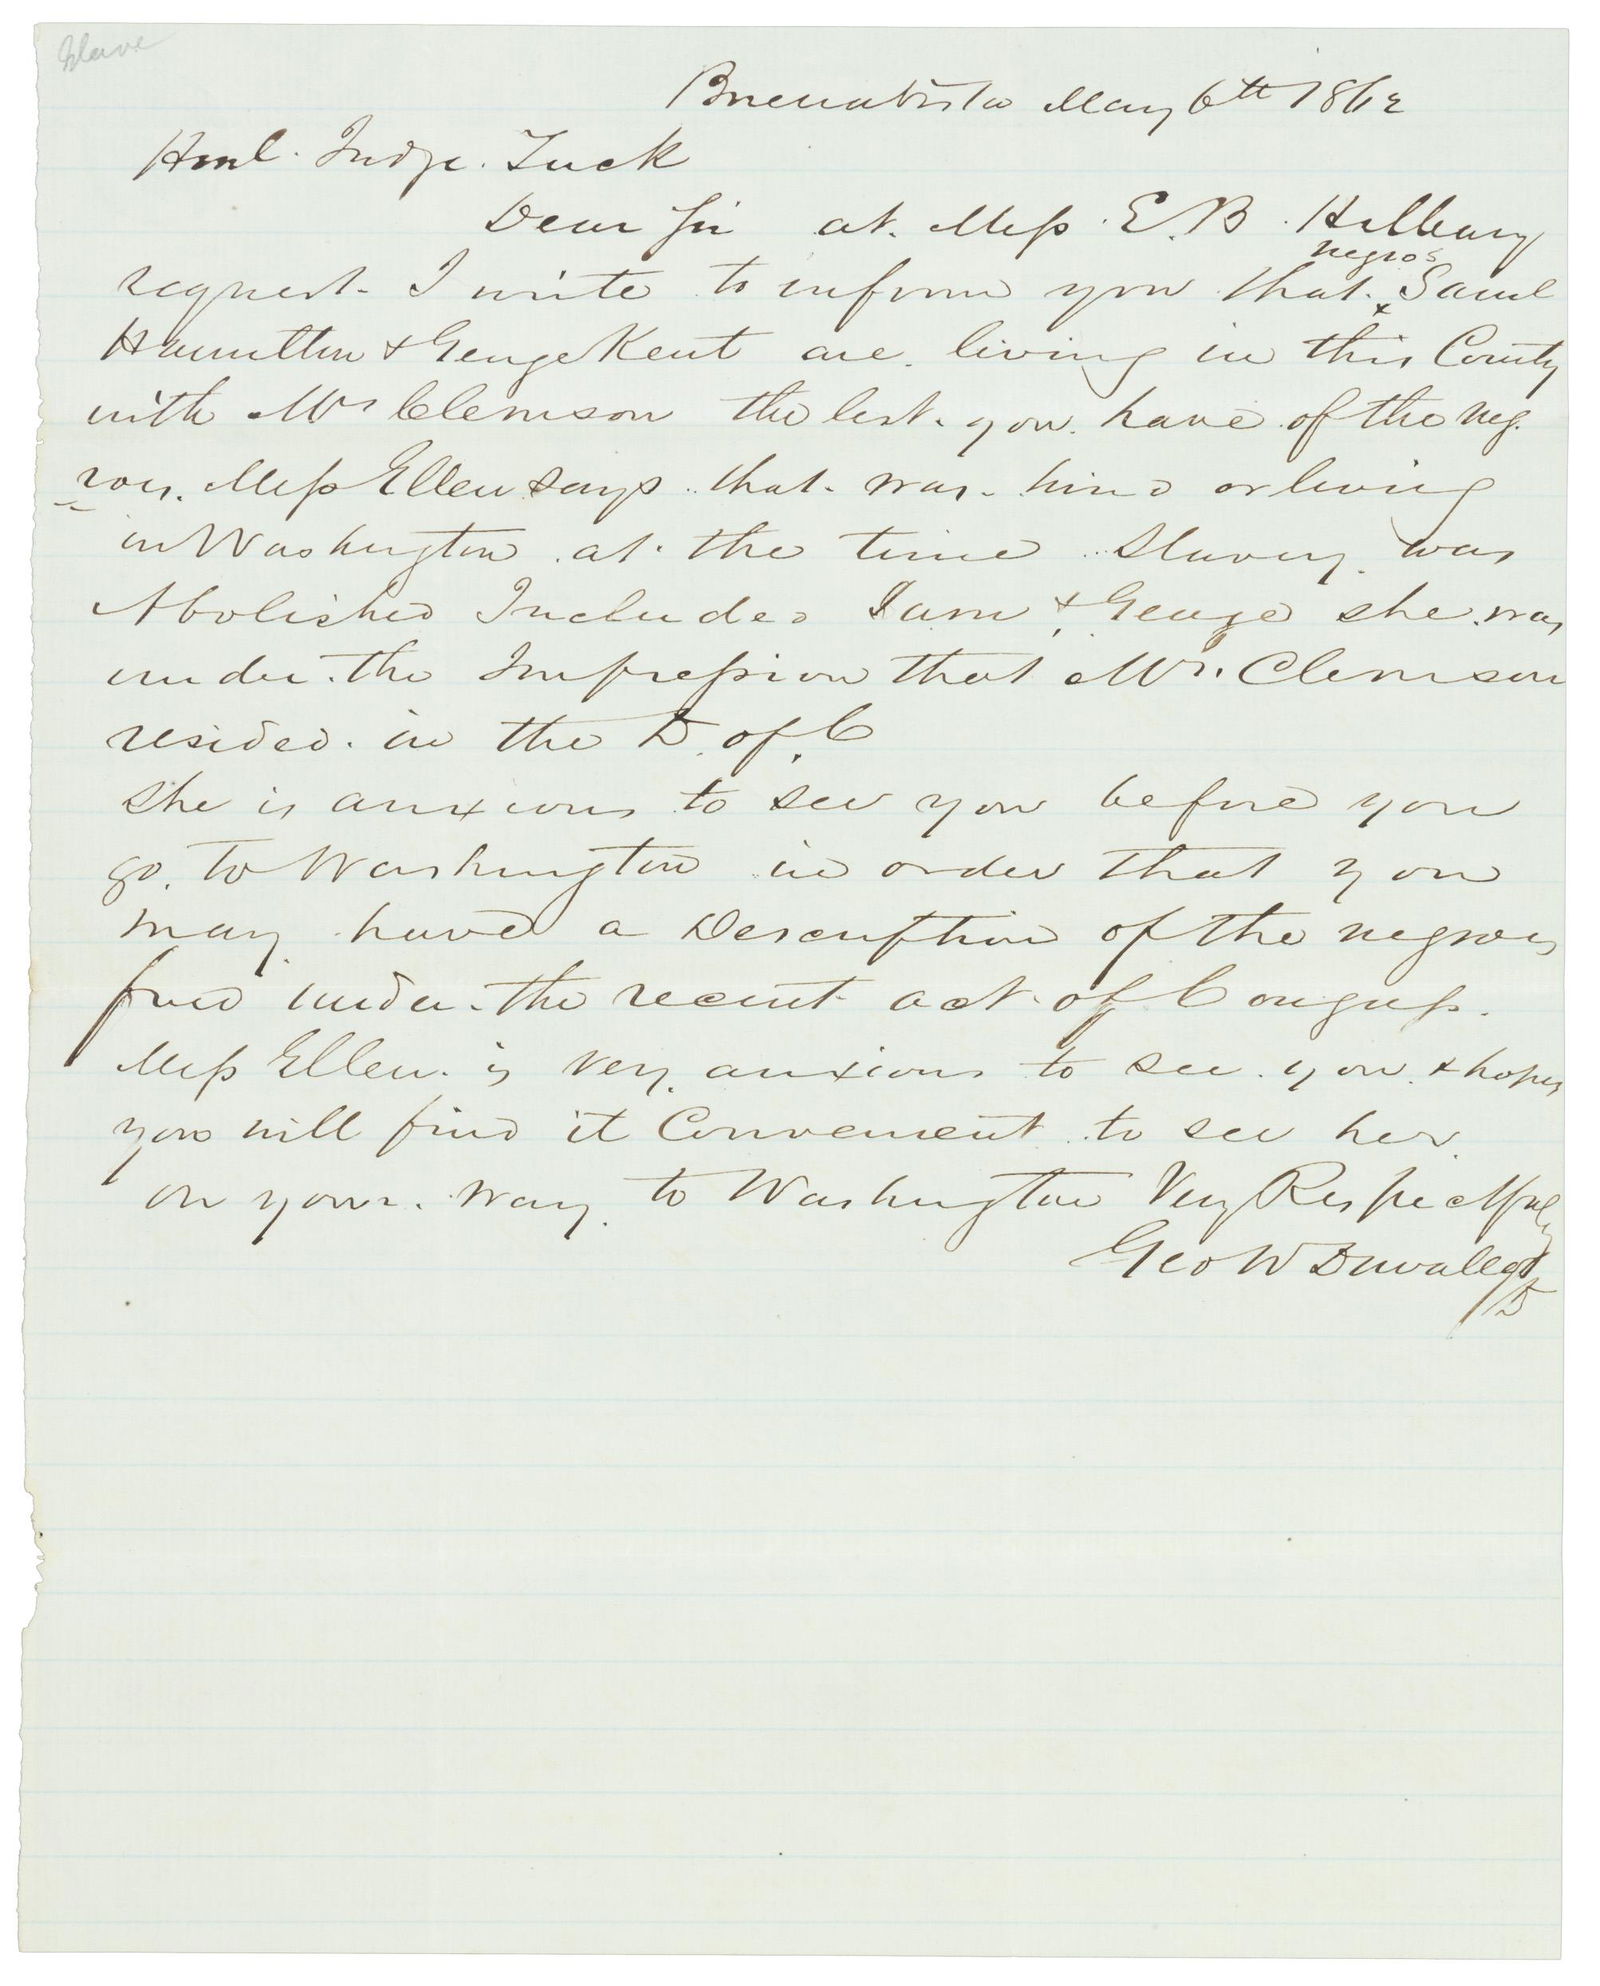 Slave
Buenavista May 6th 1862
Honl. Judge. Tuck
Dear Sir at. Miss. E. B. Hilleary
negros
request. I write to inform you that. x Saml
Hamilton & George Kent are. living in this County
with Mr Clemson the list. you. have of the neg.
roes. Miss Ellen says. that. was. hired or living
in Washington. at. the time Slavery. was
Abolished Includes Sam & George she. was
under. the Impression that Mr. Clemson
resided. in the D. of. C
She is anxious to see you before you
go. to Washington in order that you
may have a Description of the negroes
freed under. the recent act. of Congress.
Miss Ellen. is very. anxious to see. you. & hopes
you will find it Convenient to see her.
on your. way. to Washington Very Respectfuly
Geo W Duvall